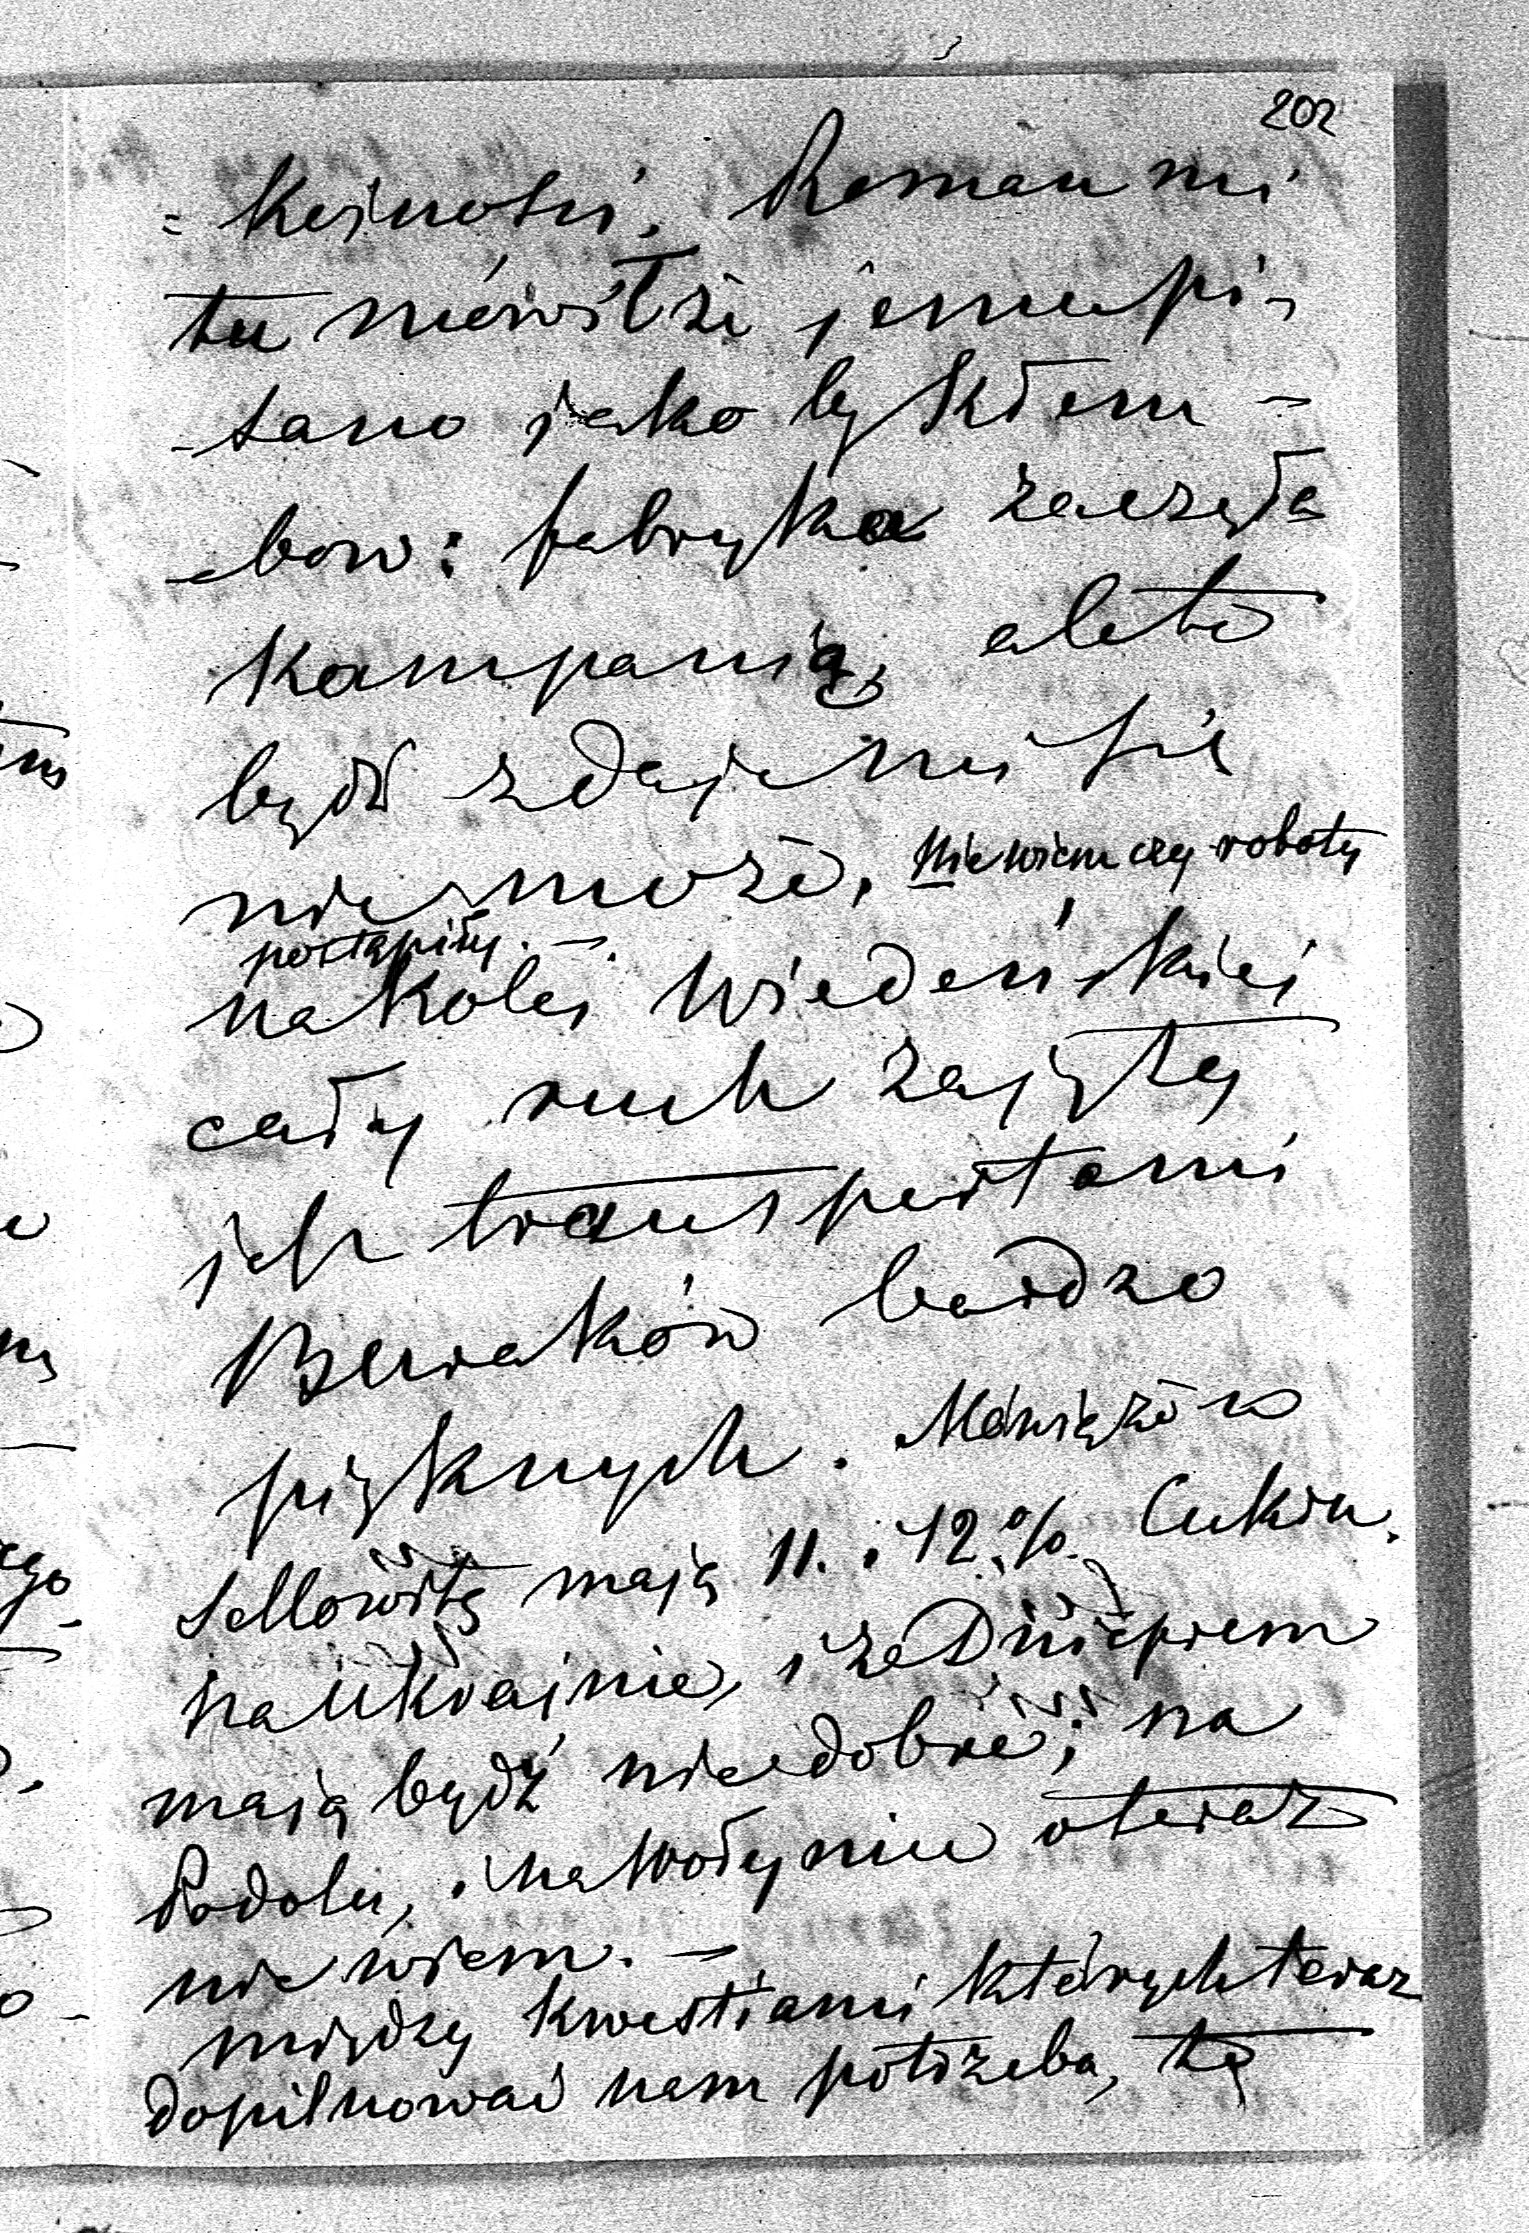 202
= kojności. Roman mi
tu mówił że jemu pi-
-sano jako by Kłem-
-bow: fabryka zaczęła
kampanią, ale to
bydź zdaje mi się
nie może. Nie wiem czy roboty
postąpiły. —.
na Kolei Wiedeńskiej
cały ruch zajęty
jest transportami
Buraków bardzo
pięknych. Mówią że w
mają 11. i 12.% Cukru.
na Ukrajnie, i za Dnieprem
mają bydź niedobre; na
Podolu, i na Wołyniu o teraz
nie wiem. —
między kwestiami których teraz
dopilnować nam potrzeba, są